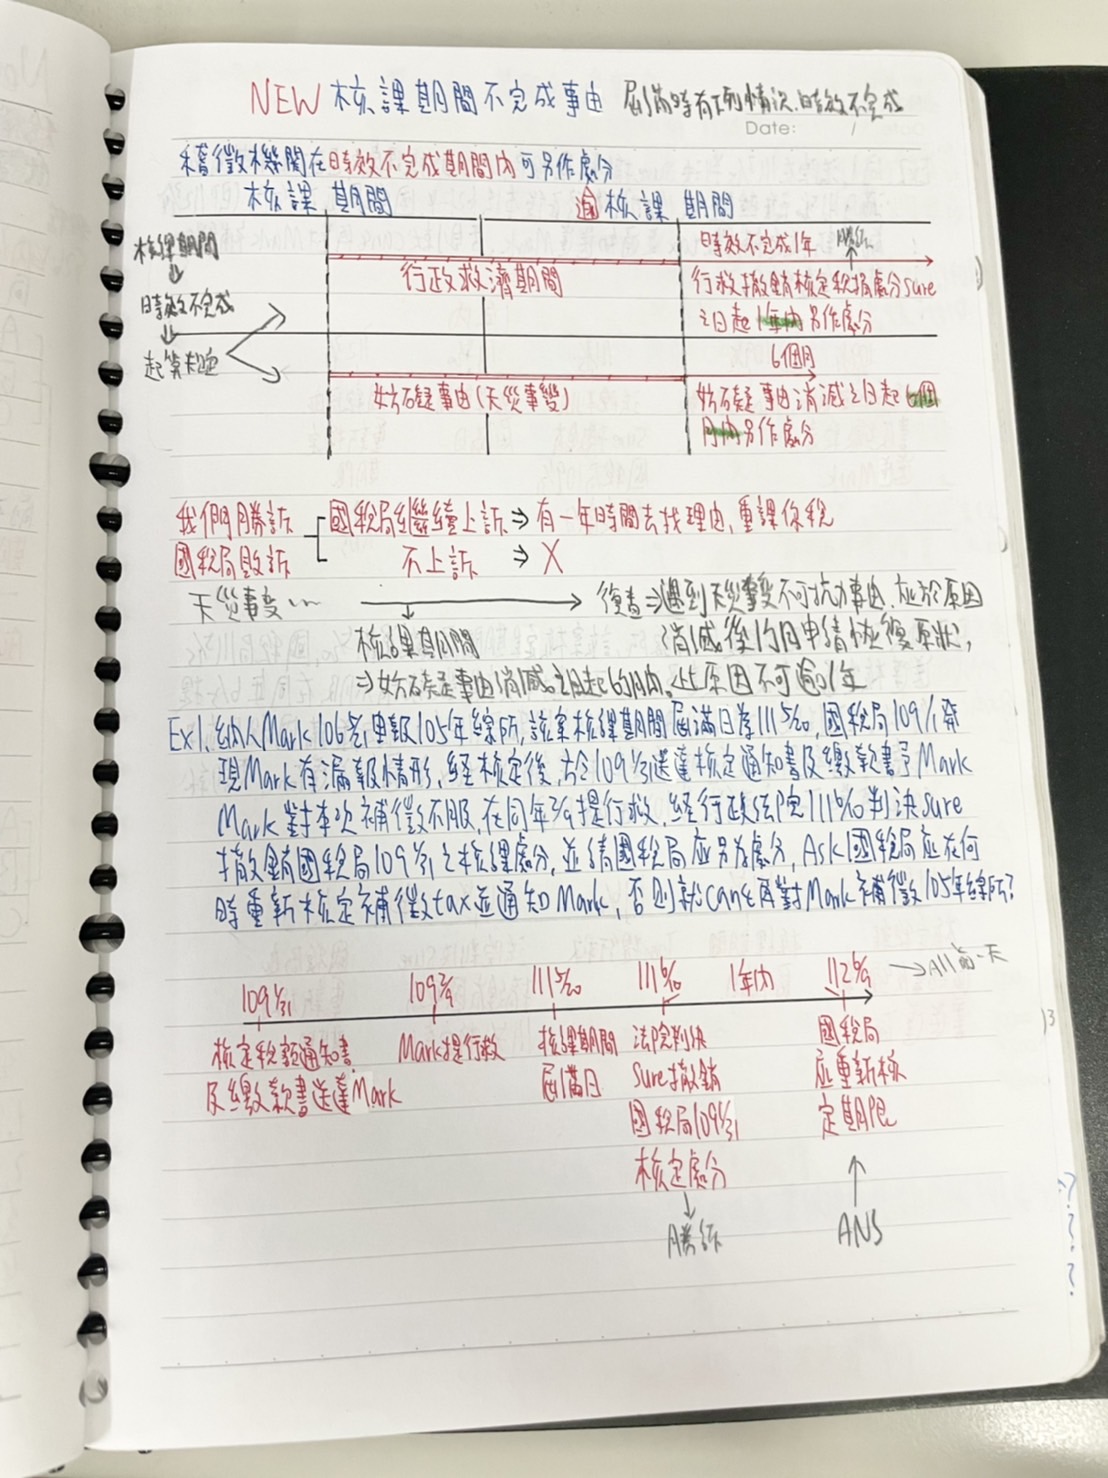 NEW 核課期間不完成事由 屆滿時有下列情況,時效不完成
Date: /
稽徵機關在時效不完成期間內可另作處分
核課期間 逾核課期間
核課期間
時效不完成
起算規定
行政救濟期間
時效不完成1年 勝訴
行救撤銷核定稅捐處分sure
之日起1年內另作處分
6個月
妨礙事由(天災事變)
妨礙事由消滅之日起6個
月內另作處分
我們勝訴 國稅局繼續上訴⇒有一年時間去找理由,重課你稅
國稅局敗訴 不上訴 ⇒ X
天災事變 → 復查⇒遇到天災事變不可抗力事由,在於原因
核課期間 消滅後1個月申請恢復原狀,
⇒妨礙事由消滅之日起6個月內,此原因不可逾1年
Ex1.納人Mark 106年申報105年綜所,該案核課期間屆滿日為111 5/20,國稅局109/1發
現Mark有漏報情形,經核定後,於109 1/31送達核定通知書及繳款書予Mark
Mark對本次補徵不服,在同年2/9提行救,經行政法院111 6/10判決sure
撤銷國稅局109 1/31之核課處分,並請國稅局應另為處分,Ask國稅局應在何
時重新核定補徵tax並通知Mark,否則就can't再對Mark補徵105年綜所?
109 1/31 109 2/9 111 5/20 111 6/10 1年內 112 6/9 →All前一天
核定稅額通知書 Mark提行救 核課期間 法院判決 國稅局
及繳款書送達Mark 屆滿日 Sure撤銷 應重新核
國稅局109 1/31 定期限
核定處分
勝訴 ANS